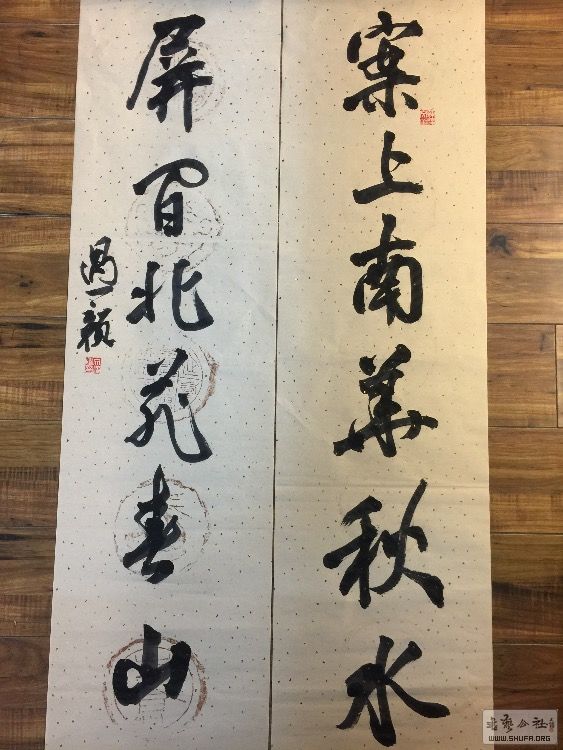 案上南華秋水
屏間北苑春山
過一
書藝公社
WWW.SHUFA.ORG